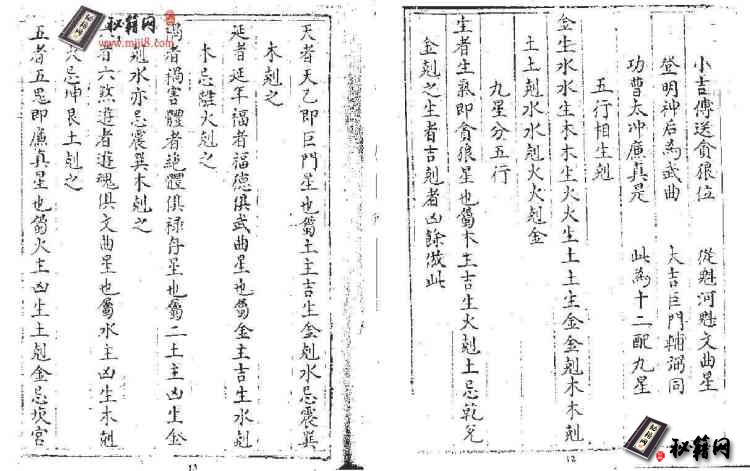 小吉傳送貪狼位 從魁河魁文曲星
登明神后為武曲 大吉巨門輔弼同
功曹太冲廉真是 此為十二配九星
五行相生剋
金生水水生木木生火火生土土生金金剋木木剋
土土剋水水剋火火剋金
九星分五行
生者生氣即貪狼星也屬木主吉生火剋土忌乾兌
金剋之生者吉剋者凶餘倣此
12
天者天乙即巨門星也屬土主吉生金剋水忌震巽
木剋之
延者延年福者福德俱武曲星也屬金主吉生水剋
木忌離火剋之
禍者禍害體者絶體俱禄存星也屬二土主凶生金
剋水亦忌震巽木剋之
者六煞遊者遊魂俱文曲星也屬水主凶生木剋
火忌坤艮土剋之
五者五鬼即廉真星也屬火主凶生土剋金忌坎宮
13
秘籍网
www.miji8.com
秘籍网